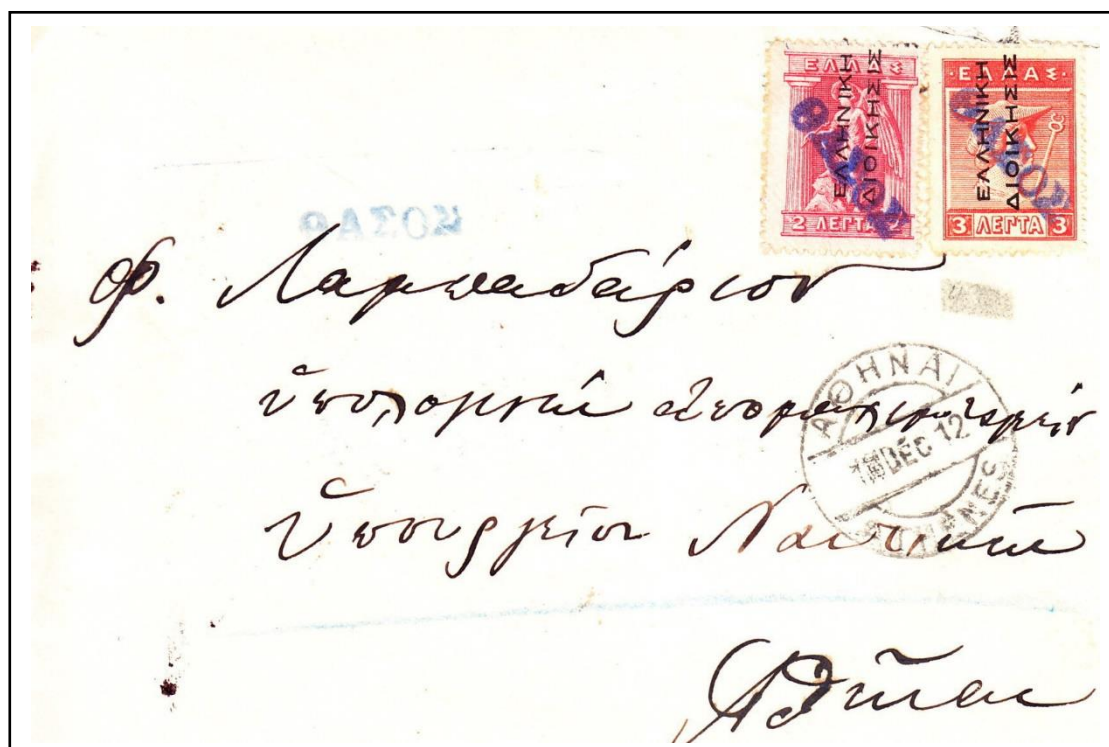 ΕΛΛΑΣ
ΕΛΛΗΝΙΚΗ
ΔΙΟΙΚΗΣΙΣ
ΘΑΣΟΣ
2 ΛΕΠΤΑ 2
·ΕΛΛΑΣ·
ΕΛΛΗΝΙΚΗ
ΔΙΟΙΚΗΣΙΣ
ΘΑΣΟΣ
3 ΛΕΠΤΑ 3
ΘΑΣΟΝ
Φ. Λαμπαδάριον
ὑπουργεῖον Ναυτικῶν
ΑΘΗΝΑΙ
DÉC 12
ATHÈNES
Ἀθήνας